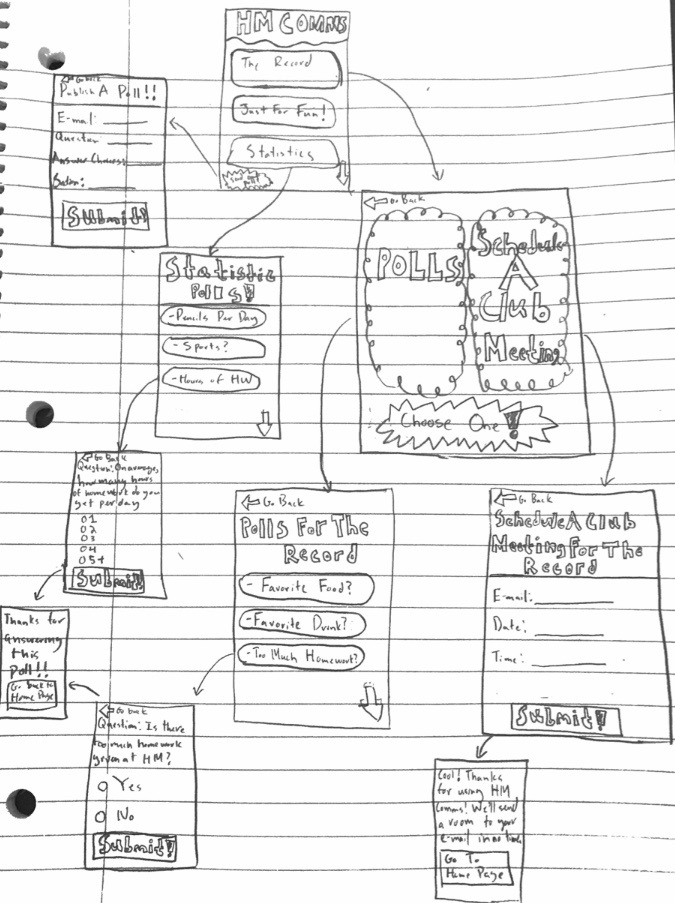 HM COMMS
The Record
Just For Fun!
Statistics
Go Back
Publish A Poll!!
E-mail:
Question:
Answer Choices:
Submit!
Go Back
POLLS
Schedule
A
Club
Meeting
Choose One!
Statistic
Polls!
-Pencils Per Day
-Sports?
-Hours of HW
Go Back
Question: On average,
how many hours
of homework do you
get per day
O 1
O 2
O 3
O 4
O 5+
Submit!
Go Back
Polls For The
Record
- Favorite Food?
- Favorite Drink?
-Too Much Homework?
Go Back
Schedule A Club
Meeting For The
Record
E-mail:
Date:
Time:
Submit!
Thanks for
answering
this
Poll!!
Go Back to
Home Page
Go Back
Question: Is there
too much homework
given at HM?
Yes
No
Submit!
Cool! Thanks
for using HM
Comms! We'll send
a room to your
e-mail in no time.
Go To
Home Page